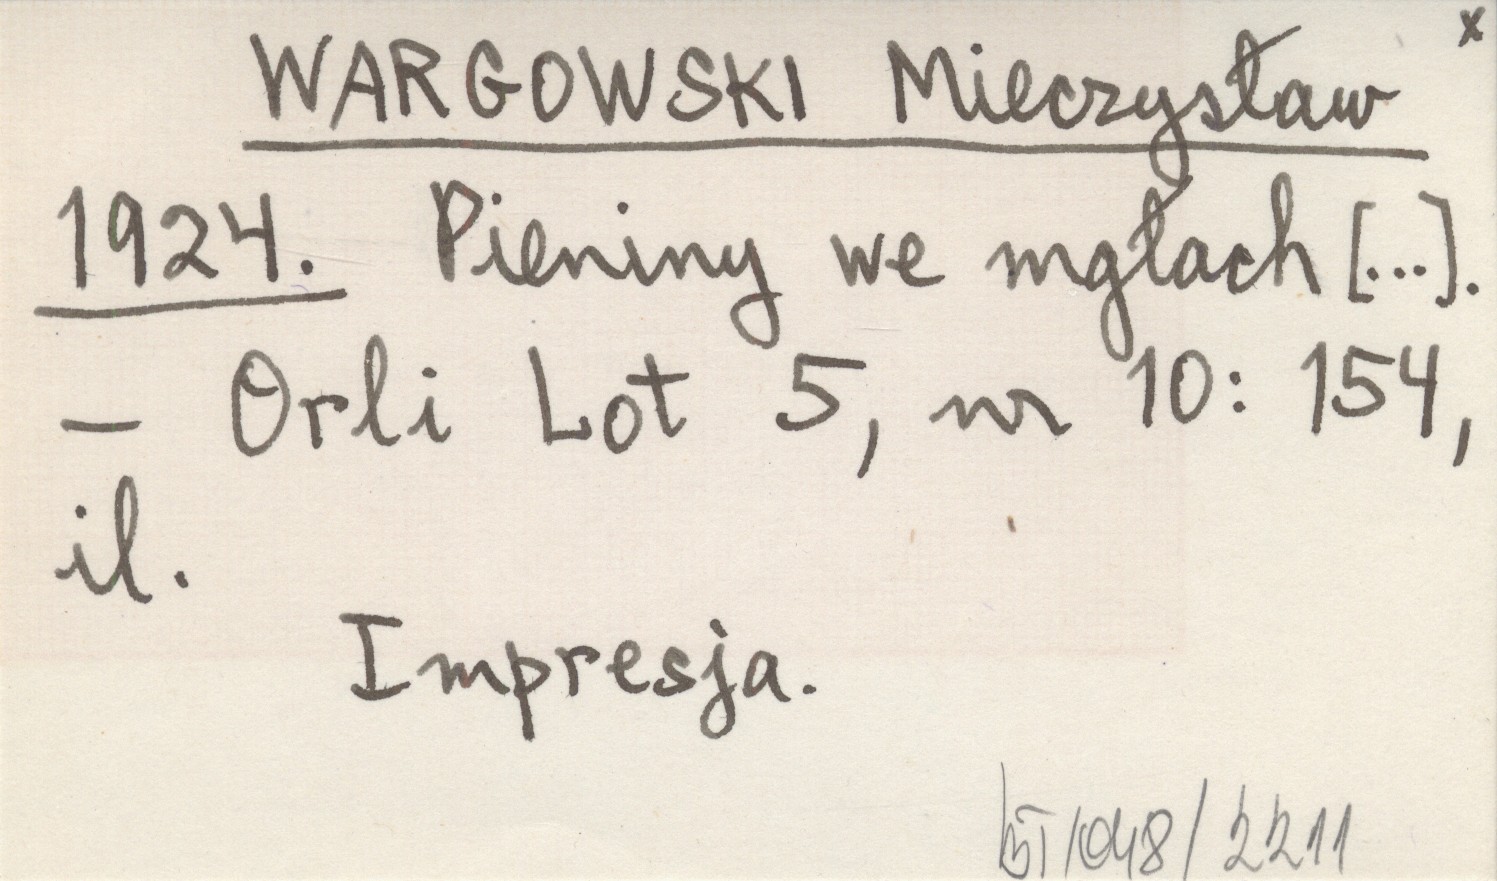 x
WARGOWSKI Mieczysław
1924. Pieniny we mgłach [...].
— Orli Lot 5, nr 10: 154,
il.
Impresja.
/048/2211